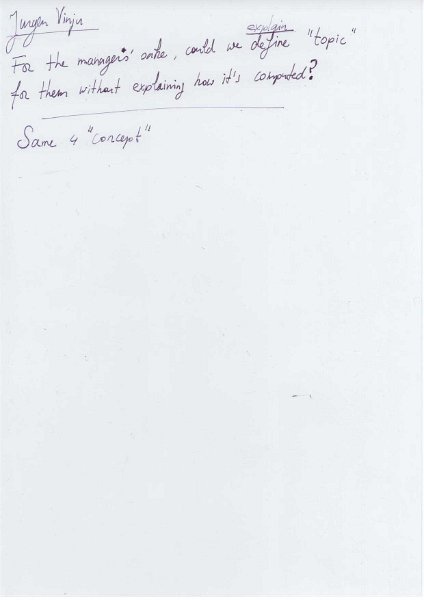 Jurgen Vinju
explain
For the managers' sake, could we define "topic"
for them without explaining how it's computed?
Same 4 "concept"